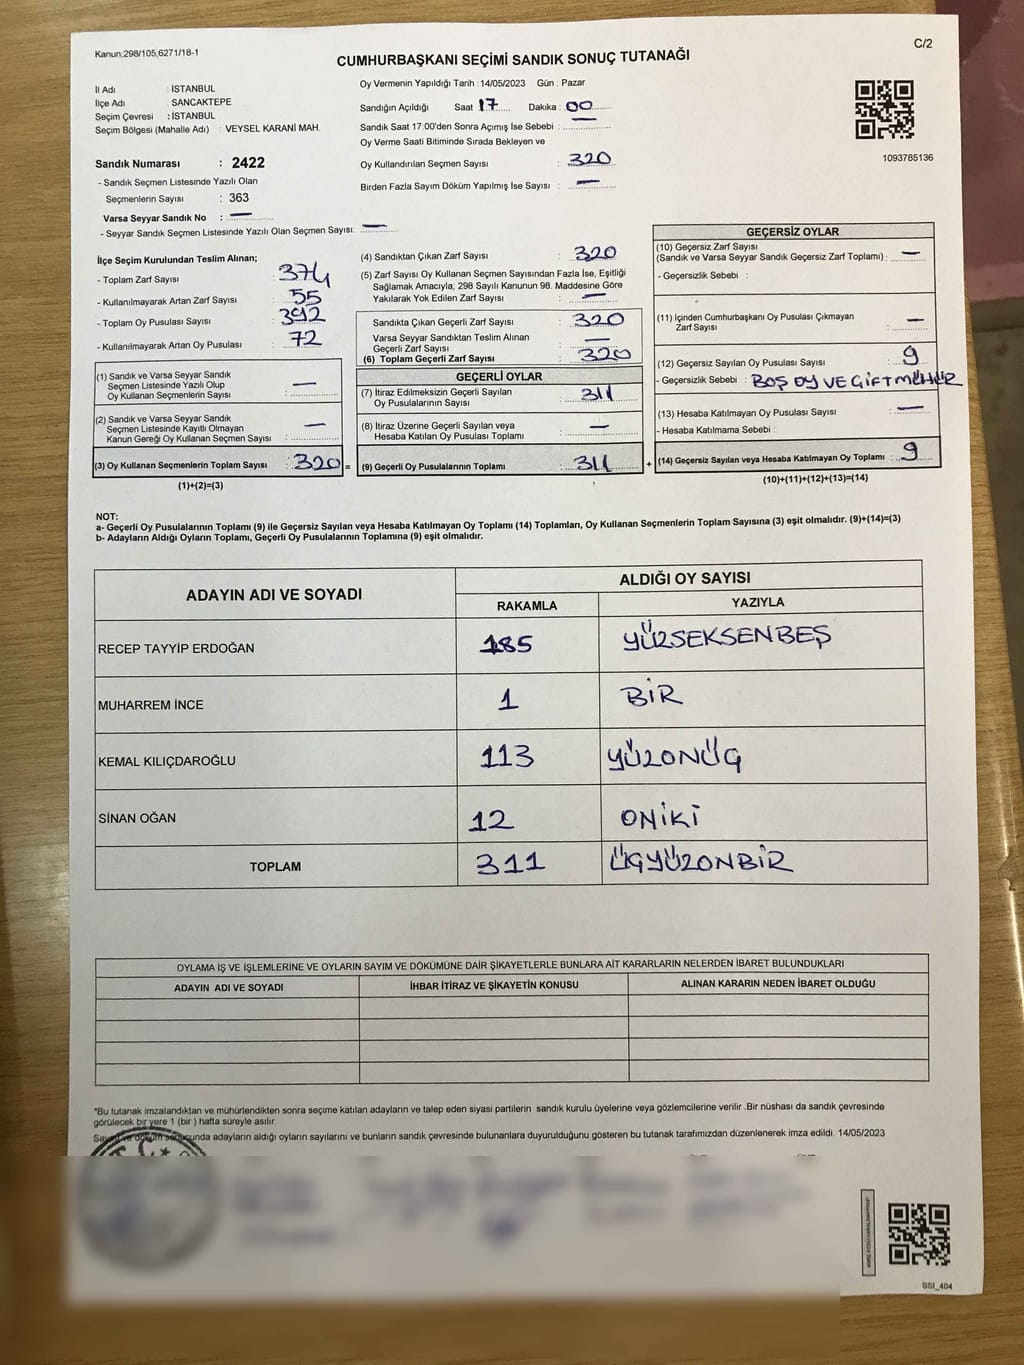 Kanun,298/105,6271/18-1
C/2
CUMHURBAŞKANI SEÇİMİ SANDIK SONUÇ TUTANAĞI
İl Adı : İSTANBUL
İlçe Adı : SANCAKTEPE
Seçim Çevresi : İSTANBUL
Seçim Bölgesi (Mahalle Adı) : VEYSEL KARANİ MAH.
Sandık Numarası : 2422
- Sandık Seçmen Listesinde Yazılı Olan
Seçmenlerin Sayısı : 363
Varsa Seyyar Sandık No : —
- Seyyar Sandık Seçmen Listesinde Yazılı Olan Seçmen Sayısı: —
Oy Vermenin Yapıldığı Tarih : 14/05/2023 Gün : Pazar
Sandığın Açıldığı Saat 17 Dakika : 00
Sandık Saat 17:00'den Sonra Açımış İse Sebebi : —
Oy Verme Saati Bitiminde Sırada Bekleyen ve
Oy Kullandırılan Seçmen Sayısı : 320
Birden Fazla Sayım Döküm Yapılmış İse Sayısı : —
1093785136
İlçe Seçim Kurulundan Teslim Alınan;
- Toplam Zarf Sayısı : 374
- Kullanılmayarak Artan Zarf Sayısı : 55
- Toplam Oy Pusulası Sayısı : 392
- Kullanılmayarak Artan Oy Pusulası : 72
(1) Sandık ve Varsa Seyyar Sandık
Seçmen Listesinde Yazılı Olup
Oy Kullanan Seçmenlerin Sayısı : —
(2) Sandık ve Varsa Seyyar Sandık
Seçmen Listesinde Kayıtlı Olmayan
Kanun Gereği Oy Kullanan Seçmen Sayısı : —
(3) Oy Kullanan Seçmenlerin Toplam Sayısı : 320 =
(1)+(2)=(3)
(4) Sandıktan Çıkan Zarf Sayısı : 320
(5) Zarf Sayısı Oy Kullanan Seçmen Sayısından Fazla İse, Eşitliği
Sağlamak Amacıyla; 298 Sayılı Kanunun 98. Maddesine Göre
Yakılarak Yok Edilen Zarf Sayısı : —
Sandıkta Çıkan Geçerli Zarf Sayısı : 320
Varsa Seyyar Sandıktan Teslim Alınan
Geçerli Zarf Sayısı : —
(6) Toplam Geçerli Zarf Sayısı : 320
GEÇERLİ OYLAR
(7) İtiraz Edilmeksizin Geçerli Sayılan
Oy Pusulalarının Sayısı : 311
(8) İtiraz Üzerine Geçerli Sayılan veya
Hesaba Katılan Oy Pusulası Toplamı : —
(9) Geçerli Oy Pusulalarının Toplamı : 311 +
GEÇERSİZ OYLAR
(10) Geçersiz Zarf Sayısı
(Sandık ve Varsa Seyyar Sandık Geçersiz Zarf Toplamı) : —
- Geçersizlik Sebebi :
(11) İçinden Cumhurbaşkanı Oy Pusulası Çıkmayan
Zarf Sayısı : —
(12) Geçersiz Sayılan Oy Pusulası Sayısı : 9
- Geçersizlik Sebebi : BOŞ OY VE GİFT MÜHÜR
(13) Hesaba Katılmayan Oy Pusulası Sayısı : —
- Hesaba Katılmama Sebebi :
(14) Geçersiz Sayılan veya Hesaba Katılmayan Oy Toplamı : 9
(10)+(11)+(12)+(13)=(14)
NOT:
a- Geçerli Oy Pusulalarının Toplamı (9) ile Geçersiz Sayılan veya Hesaba Katılmayan Oy Toplamı (14) Toplamları, Oy Kullanan Seçmenlerin Toplam Sayısına (3) eşit olmalıdır. (9)+(14)=(3)
b- Adayların Aldığı Oyların Toplamı, Geçerli Oy Pusulalarının Toplamına (9) eşit olmalıdır.
ADAYIN ADI VE SOYADI
ALDIĞI OY SAYISI
RAKAMLA YAZIYLA
RECEP TAYYİP ERDOĞAN 185 YÜZSEKSENBEŞ
MUHARREM İNCE 1 BİR
KEMAL KILIÇDAROĞLU 113 YÜZONÜG
SİNAN OĞAN 12 ONİKİ
TOPLAM 311 ÜGYÜZONBİR
OYLAMA İŞ VE İŞLEMLERİNE VE OYLARIN SAYIM VE DÖKÜMÜNE DAİR ŞİKAYETLERLE BUNLARA AİT KARARLARIN NELERDEN İBARET BULUNDUKLARI
ADAYIN ADI VE SOYADI İHBAR İTİRAZ VE ŞİKAYETİN KONUSU ALINAN KARARIN NEDEN İBARET OLDUĞU
*Bu tutanak imzalandıktan ve mühürlendikten sonra seçime katılan adayların ve talep eden siyasi partilerin sandık kurulu üyelerine veya gözlemcilerine verilir .Bir nüshası da sandık çevresinde
görülecek bir yere 1 (bir ) hafta süreyle asılır.
Sayım ve döküm sonucunda adayların aldığı oyların sayılarını ve bunların sandık çevresinde bulunanlara duyurulduğunu gösteren bu tutanak tarafımızdan düzenlenerek imza edildi. 14/05/2023
SSI_404